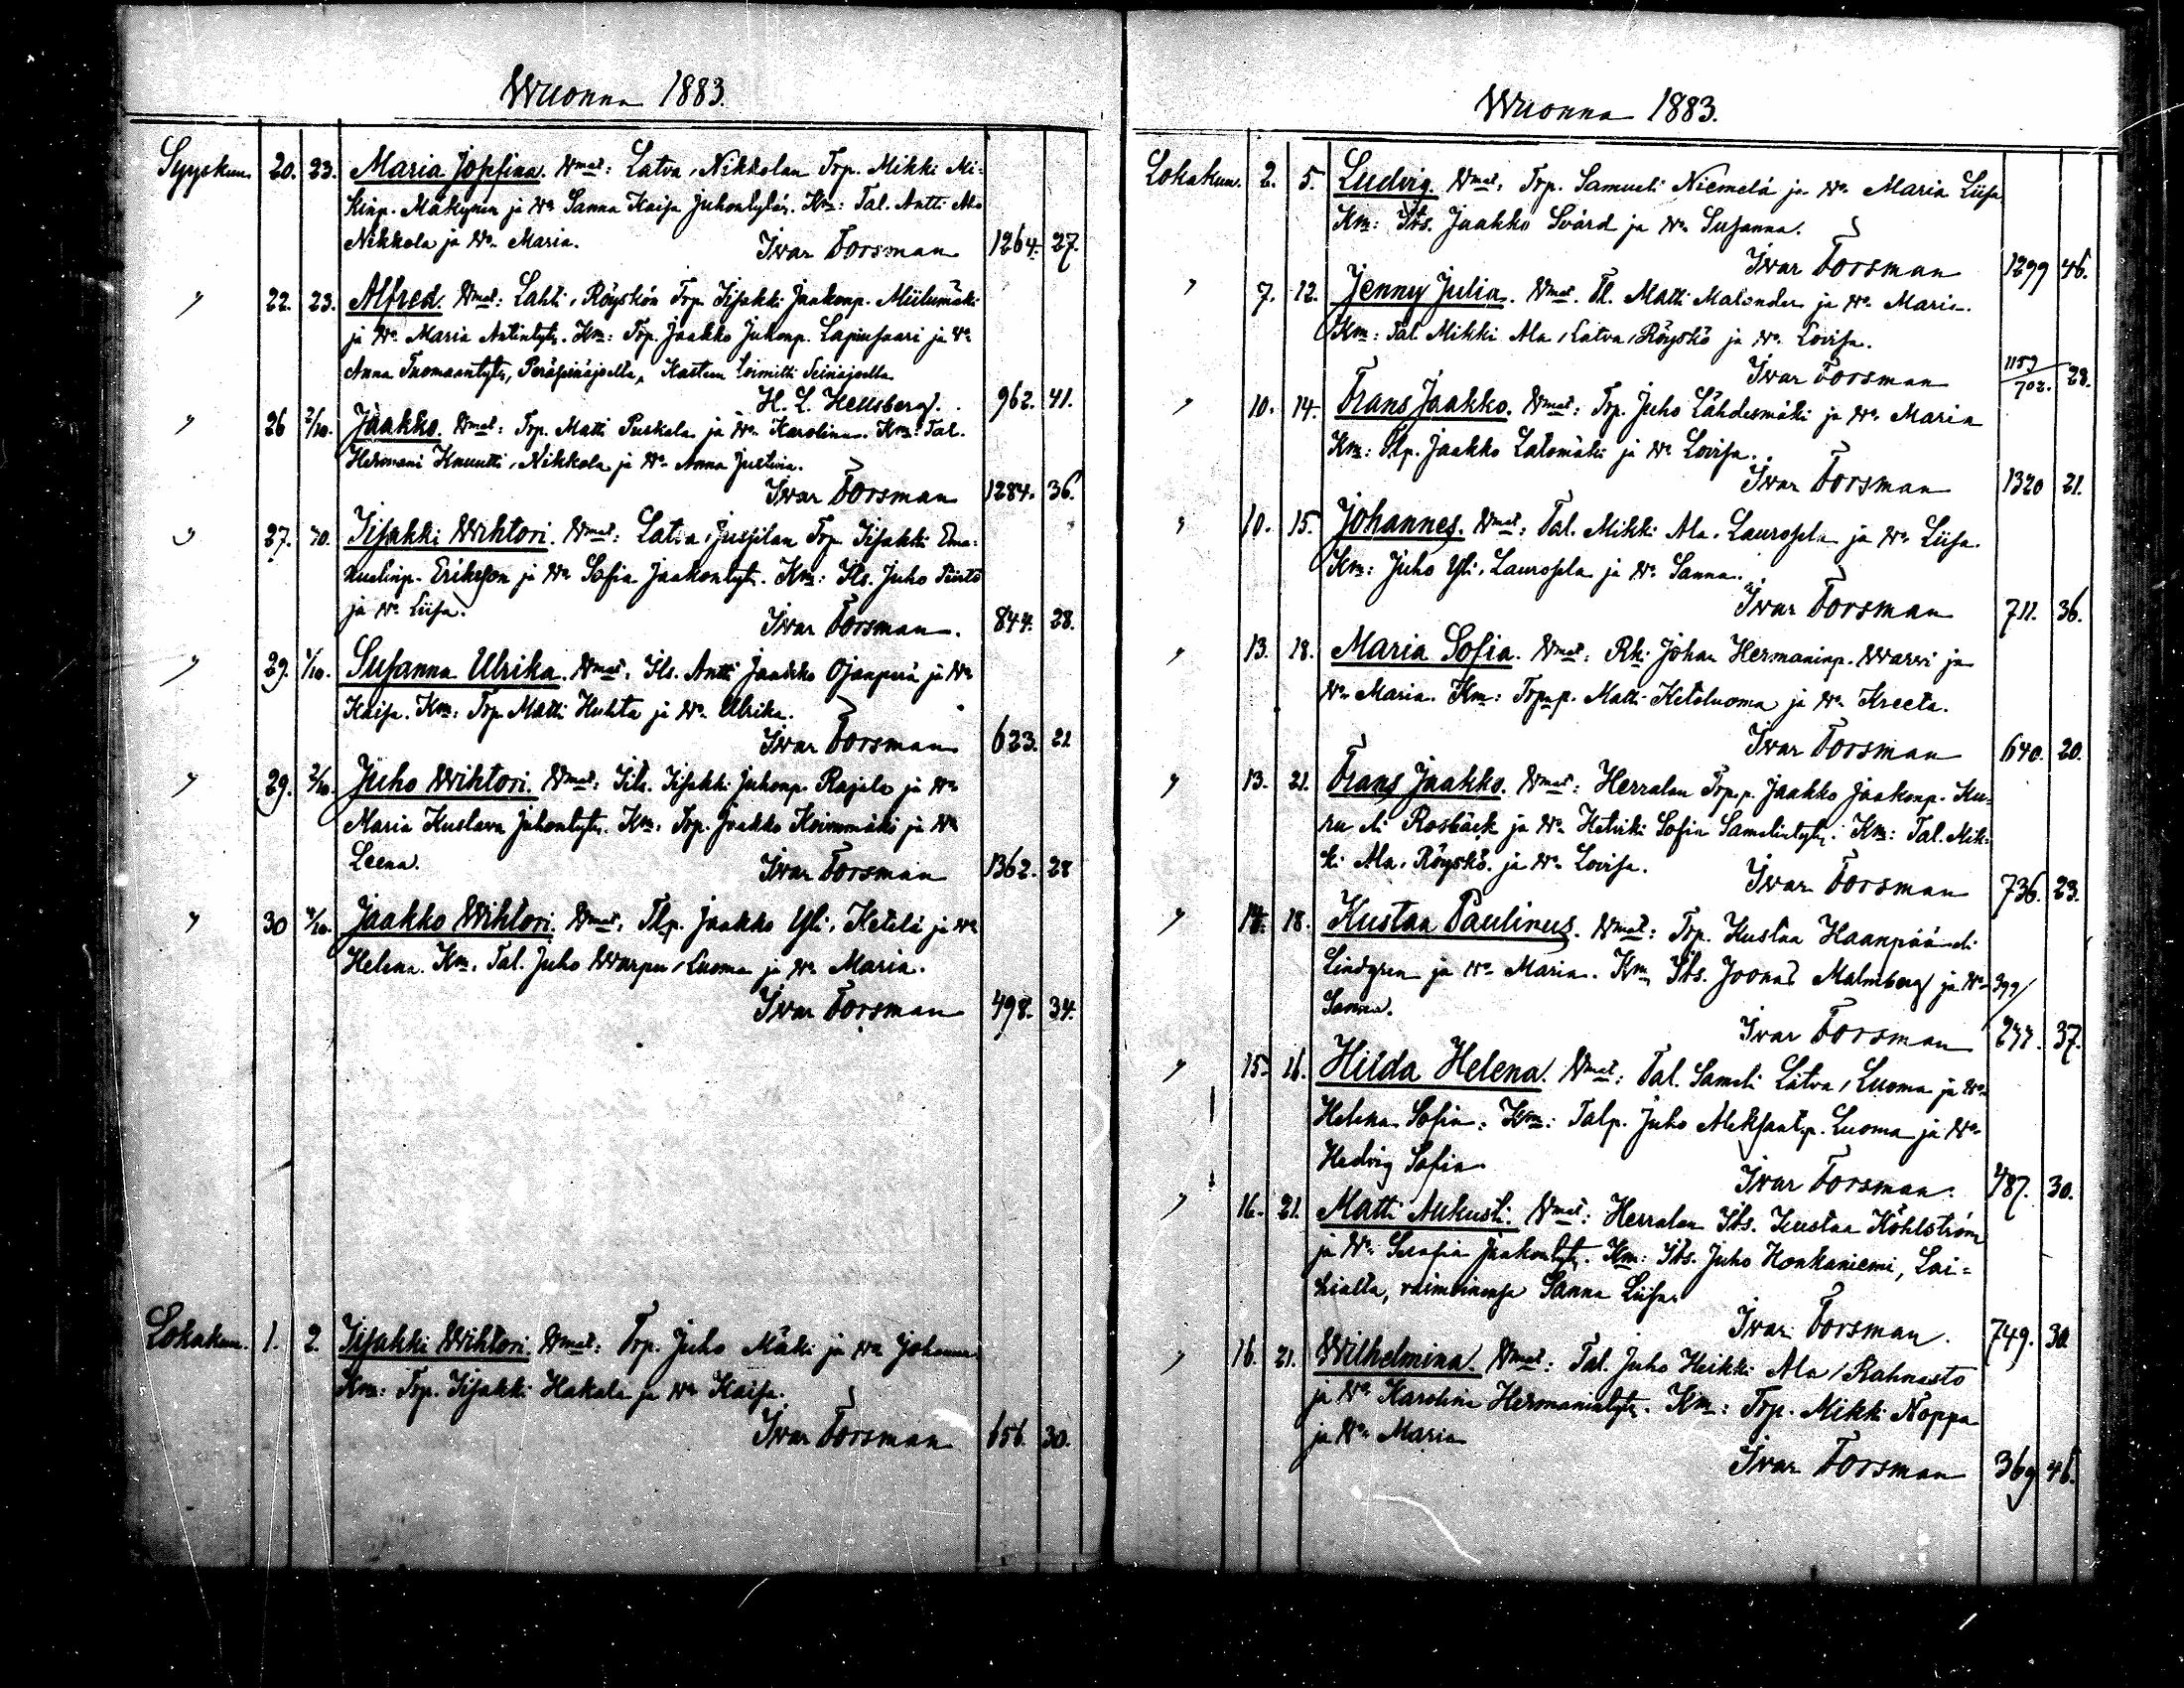 Wuonna 1883.
Syyskuu. 20. 23. Maria Josefina. Wmat: Latva, Nikkolan Trp. Mikki Mi-
kinp. Mäkynen ja Wo Sanna Kaisa Juhontytär. Km: Tal. Antti Ala
Nikkola ja Wo Maria. Ivar Forsman 1264. 27.
" 22. 23. Alfred. Wmat: Lahti, Röyskön Trp. Iisakki Jaakonp. Miilumäki
ja Wo Maria Antintytr. Km: Trp. Jaakko Juhonp. Lapinsaari ja Wo
Anna Tuomaantytr, Peräseinäjoelta, Kasteen toimitti Seinäjoella
H. L. Hellsberg. 962. 41.
" 26 2/10. Jaakko. Wmat: Trp. Matti Puskala ja Wo Karolina. Km: Tal.
Hermanni Knuutti, Nikkola ja Wo Anna Justina.
Ivar Forsman 1284. 36.
" 27. Iisakki Wihtori. Wmat: Latva, Jussilan Trp. Iisakki Ema-
nuelinp. Eriksson ja Wo Sofia Jaakontytr. Km: Its. Juho
ja Wo Liisa. Ivar Forsman. 844. 28.
" 29. 1/10. Susanna Ulrika. Wmat. Its. Antti Jaakko Ojanperä ja Wo
Kaisa. Km: Trp. Matti Huhta ja Wo Ulrika.
Ivar Forsman 623. 21
" 29. 2/10. Juho Wihtori. Wmat: Its. Iisakki Juhonp. Rajala ja Wo
Maria Kustava Juhontytr. Km. Trp. Jaakko Koivumäki ja Wo
Leena. Ivar Forsman 1362. 28
" 30 4/10. Jaakko Wihtori. Wmat. Tlp. Jaakko Yli, Ketelä ja Wo
Helena. Km. Tal. Juho Warpu, Luoma ja Wo Maria.
Ivar Forsman 498. 34.
Lokakuu. 1. 2. Iisakki Wihtori. Wmat: Trp. Juho Mäki ja Wo Johanna
Km: Trp. Iisakki Hakala ja Wo Kaisa.
Ivar Forsman 656. 30.
Wuonna 1883.
Lokakuu. 2. 5. Ludvig. Wmat. Trp. Samueli Niemelä ja Wo Maria Liisa
Km: Its. Jaakko Svärd ja Wo Susanna.
Ivar Forsman 1299 46.
" 7. 12. Jenny Julia. Wmat. Tl. Matti Malander ja Wo Maria.
Km: Tal. Mikki Ala, Latva, Röyskö ja Wo Lovisa.
Ivar Forsman 1159/702. 28.
" 10. 14. Frans Jaakko. Wmat: Trp. Juho Lähdesmäki ja Wo Maria
Km: Tlp. Jaakko Latomäki ja Wo Lovisa.
Ivar Forsman 1320 21.
" 10. 15. Johannes. Wmat: Tal. Mikki Ala, Laurosela ja Wo Liisa.
Km: Juho Yli, Laurosela ja Wo Sanna.
Ivar Forsman 711. 36.
" 13. 18. Maria Sofia. Wmat: Rk: Johan Hermaninp. Warvi ja
Wo Maria. Km: Trp.p. Matti Ketoluoma ja Wo Kreeta.
Ivar Forsman 640. 20.
" 13. 21. Frans Jaakko. Wmat: Herralan Trp.p. Jaakko Jaakonp. Ku-
ru eli Rosbäck ja Wo Hetviki Sofia Samelintytr. Km: Tal. Mik-
ki Ala, Röyskö. ja Wo Lovisa. Ivar Forsman 736. 23.
" 14. 18. Kustaa Paulinus. Wmat: Trp. Kustaa Haanpää eli
Lindgren ja Wo Maria. Km. Its. Joonas Malmberg ja Wo 399/
Sanna. Ivar Forsman 277. 37.
" 15. 16. Hilda Helena. Wmat: Tal. Sameli Latva, Luoma ja Wo
Helena Sofia. Km: Talp. Juho Aleksantp. Luoma ja Wo
Hedvig Sofia. Ivar Forsman. 487. 30.
" 16. 21. Matti Aukusti. Wmat: Herralan Its. Kustaa Köhlström
ja Wo Serafia Jaakontytr. Km: Its. Juho Honkaniemi, Lai-
hialta, vaimoinensa Sanna Liisa.
Ivar Forsman. 749. 30.
" 16. 21. Wilhelmina. Wmat: Tal. Juho Heikki Ala, Rahnasto
ja Wo Karolina Hermanintytr. Km: Trp. Mikki Noppa
ja Wo Maria
Ivar Forsman 369 46.